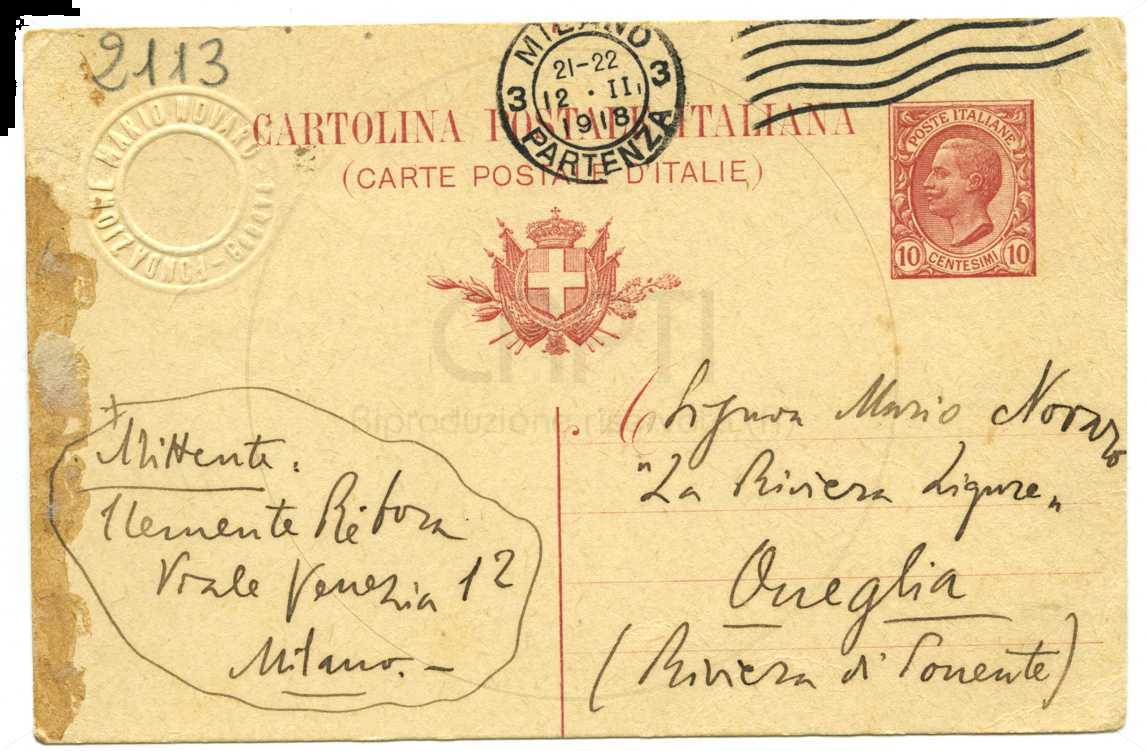 2113
MILANO
3 21-22 3
12 · II.
1918
PARTENZA
FONDAZIONE MARIO NOVARO - GENOVA
CARTOLINA POSTALE ITALIANA
(CARTE POSTALE D'ITALIE)
POSTE ITALIANE
10 CENTESIMI 10
CHPTI
Riproduzione riservata
Mittente.
Clemente Rèbora
Viale Venezia 12
Milano. -
Signor Mario Novaro
"La Riviera Ligure"
Oneglia
(Riviera di Ponente)